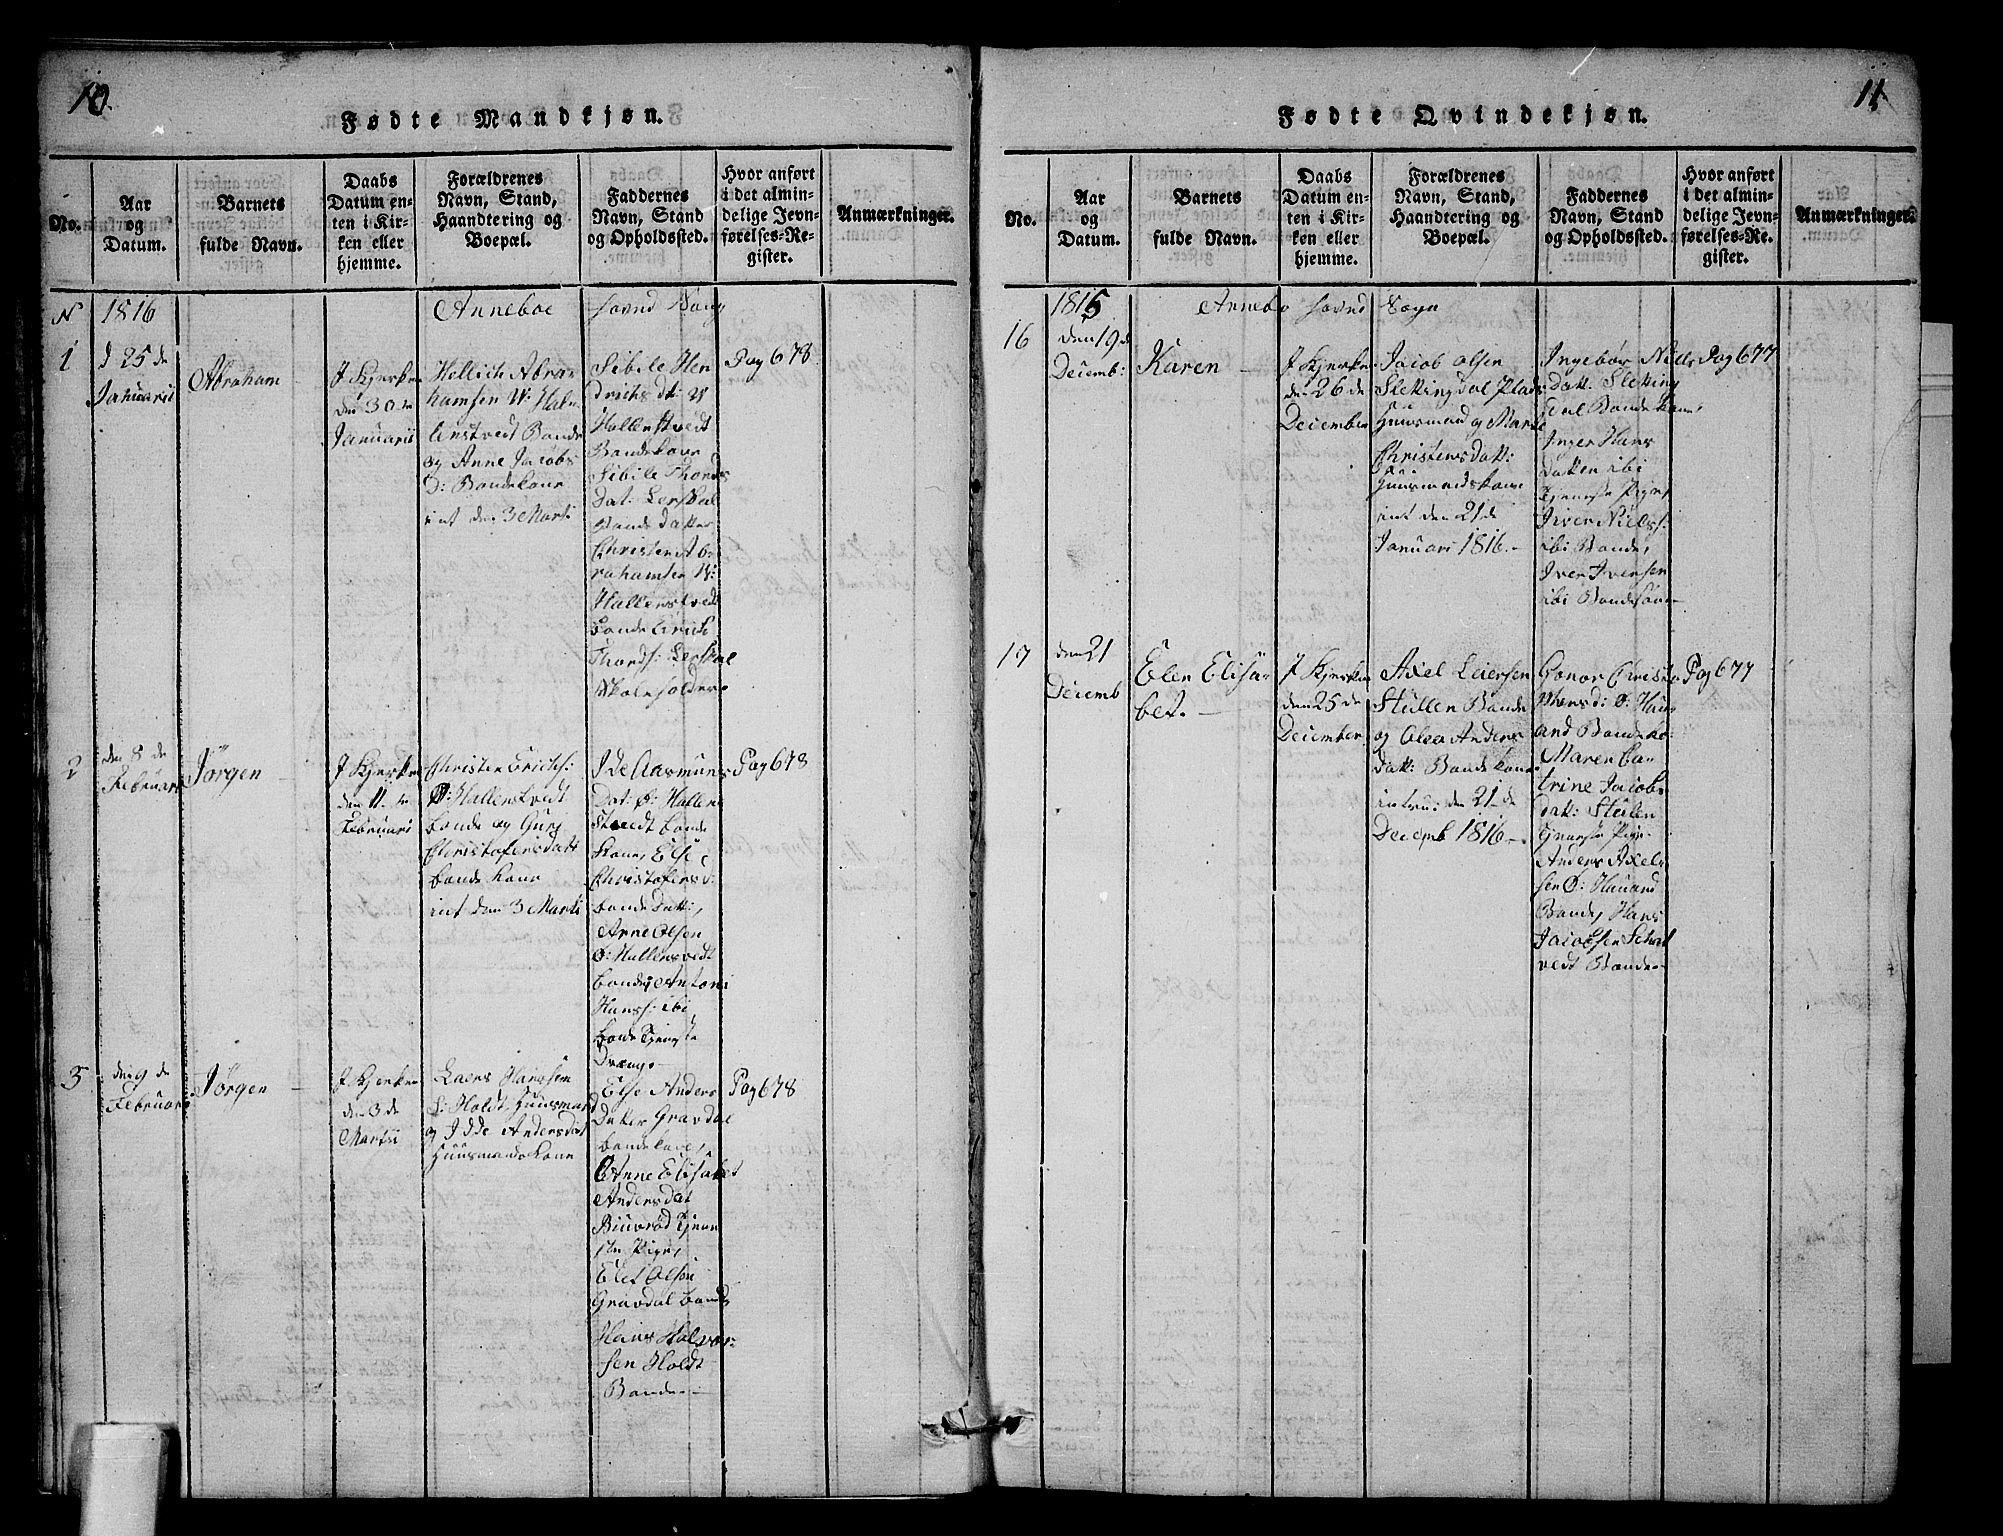 10.
Fødte Mandkjøn.
No.
Aar
og
Datum.
Barnets
fulde Navn.
Daabs
Datum en-
ten i Kir-
ken eller
hjemme.
Forældrenes
Navn, Stand,
Haandtering og
Boepæl.
Faddernes
Navn, Stand
og Opholdssted.
Hvor anført
i det almin-
delige Jevn-
førelses-Re-
gister.
Anmærkninger.
N 1816 Anneboe Sovnd Sogn
1
d 25 de
Januarii
Abraham
J Kjerken
den 30 te
Januarii
Hellich Abra-
hamsen W: Hal-
lenstvedt Bonde
og Anne Jacobs
D: Bondekone
int den 3 Marti
Sibile Hen
drichs dt: W
Hallenstvedt
Bondekone
Sibile Thords
Dat: Lerskal
Bonde datter
Christen Ab-
rahamsen W:
Hallenstvedt
Bonde Erich
Thords: Lerskal
Skoleholder
Pag 678
2
den 8 de
Februari
Jörgen
J Kjerken
den 11 te
Februari
Christen Erichs:
Ø: Hallenstvedt
bonde og Gurj
Christofersdatt
bonde kone
int den 3 Marti
Ide Aasmuns
Dat: Ø: Hallen
Stvedt bonde
Kone, Else
Christofersd:
bonde Datt:,
Arne Olsen
Ø: Hallensvedt
bonde, Antoni
Hanss: ibi
bonde Tjenste
Dreng
Pag 678
3
den 9 de
Februari
Jörgen
J Kjerken
den 3 de
Martii
Laers Hansen
S: Holdt Huusmand
og Idde Andersdat
Huusmands kone
Else Anders
Dater Gravdal
bondekone,
Anne Elisabet
Andersdat
Biuvrød Tjene
ste Pige,
Elef Olsen
Gravdal bonde
Hans Halvor-
sen Holdt
Bonde
Pag 678
11.
Fødte Qvindekjøn.
No.
Aar
og
Datum.
Barnets
fulde Navn.
Daabs
Datum en-
ten i Kir-
ken eller
hjemme.
Forældrenes
Navn, Stand,
Haandtering og
Boepæl.
Faddernes
Navn, Stand
og Opholdssted.
Hvor anført
i det almin-
delige Jevn-
førelses-Re-
gister.
Anmærkninger.
1815 Annebo Sovnd Sogn
16
den 19 d
Decemb:
Karen
J Kjerken
den 26 de
December
Jacob Olsen
Slettingdal Plads
Huusmand og Marte
Christensdatt:
Huusmandskone
int den 21 de
Januari 1816.
Ingebór Niels
Datt: Sletting
dal Bondekone,
Inger Hans
Datter ibi
Tjenste Pige,
Iver Nielss:
ibi Bonde,
Iver Iversen
ibi Bondesøn
Pag 677
17
den 21
Decemb
Elen Elisa-
bet.
J Kjerken
den 25 de
December
Axel Leiersen
Stullen Bonde
og Olea Anders
datt: Bondekone
intru: den 21 de
Decemb 1816.
Gonor Christo
phersd: Ø: Hau
and Bondeko:
Maren Ca-
trine Jacobs
Datt: Stulen
Tjenste Pige
Anders Axel-
sen Ø: Hauand
Bonde, Hans
Jacobsen
vedt Bonde
Pag 677